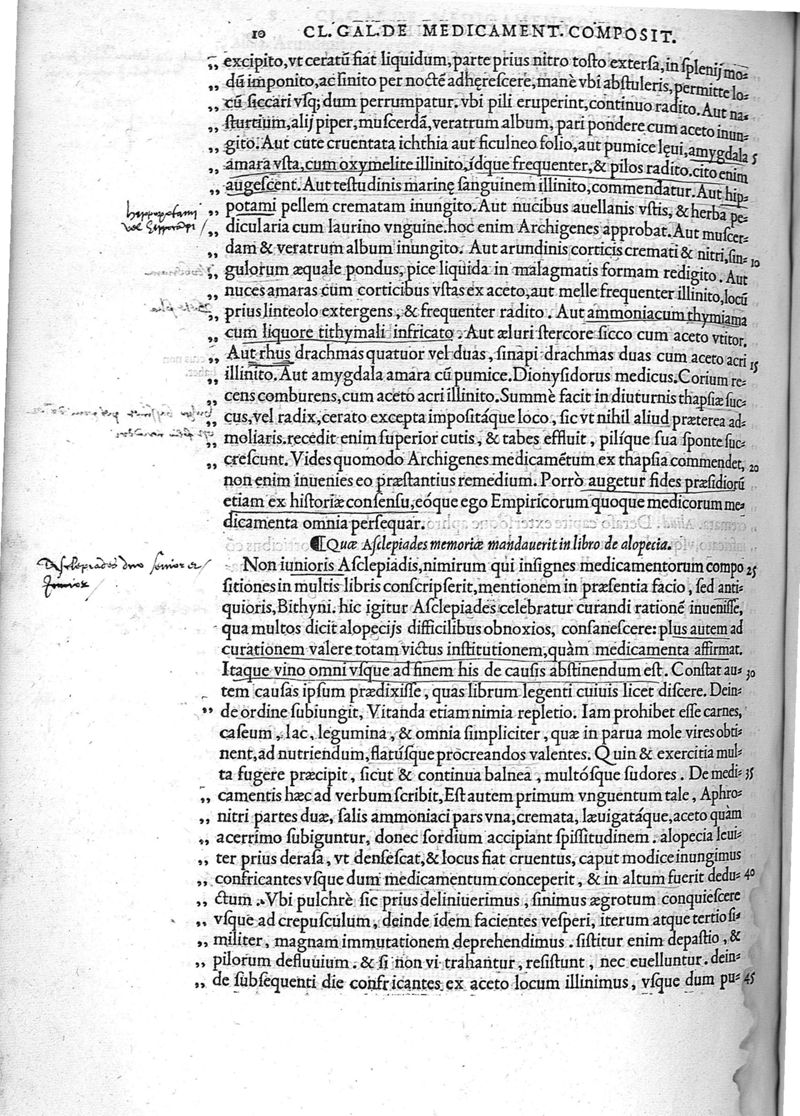 10 CL. GAL. DE MEDICAMENT. COMPOSIT.
„ excipito, vt ceratū fiat liquidum, parte prius nitro tosto extersa, in splenij mo-
„ dū imponito, ac sinito per noctē adhęrescere, manè vbi abstuleris, permitte lo-
„ cū siccari vsq; dum perrumpatur. vbi pili eruperint, continuo radito. Aut na-
„ sturtium, alij piper, muscerdā, veratrum album, pari pondere cum aceto inun-
„ gito. Aut cute cruentata ichthia aut ficulneo folio, aut pumice lęui, amygdala 5
„ amara vsta, cum oxymelite illinito, idque frequenter, & pilos radito. cito enim
„ augescent. Aut testudinis marinę sanguinem illinito, commendatur. Aut hip-
„ potami pellem crematam inungito. Aut nucibus auellanis vstis, & herba pe-
„ dicularia cum laurino vnguine. hoc enim Archigenes approbat. Aut muscer-
„ dam & veratrum album inungito. Aut arundinis corticis cremati & nitri, sin- 10
„ gulorum æquale pondus, pice liquida in malagmatis formam redigito. Aut
„ nuces amaras cum corticibus vstas ex aceto, aut melle frequenter illinito, locū
„ prius linteolo extergens, & frequenter radito. Aut ammoniacum thymiama
„ cum liquore tithymali infricato. Aut æluri stercore sicco cum aceto vtitor.
„ Aut rhus drachmas quatuor vel duas, sinapi drachmas duas cum aceto acri 15
„ illinito. Aut amygdala amara cū pumice. Dionysidorus medicus. Corium re-
„ cens comburens, cum aceto acri illinito. Summè facit in diuturnis thapsiæ suc-
„ cus, vel radix, cerato excepta impositáque loco, sic vt nihil aliud præterea ad-
„ moliaris. recedit enim superior cutis, & tabes effluit, pilíque sua sponte suc-
„ crescunt. Vides quomodo Archigenes medicamētum ex thapsia commendet, 20
non enim inuenies eo præstantius remedium. Porrò augetur fides præsidiorū
etiam ex historiæ consensu, eóque ego Empiricorum quoque medicorum me-
dicamenta omnia persequar.
¶ Quæ Asclepiades memoriæ mandauerit in libro de alopecia.
Non iunioris Asclepiadis, nimirum qui insignes medicamentorum compo 25
sitiones in multis libris conscripserit, mentionem in præsentia facio, sed anti-
quioris, Bithyni. hic igitur Asclepiades celebratur curandi rationē inuenisse,
qua multos dicit alopecijs difficilibus obnoxios, consanescere: plus autem ad
curationem valere totam victus institutionem, quàm medicamenta affirmat.
Itaque vino omni vsque ad finem his de causis abstinendum est. Constat au- 30
tem causas ipsum prædixisse, quas librum legenti cuiuis licet discere. Dein-
„ de ordine subiungit, Vitanda etiam nimia repletio. Iam prohibet esse carnes,
caseum, lac, legumina, & omnia simpliciter, quæ in parua mole vires obti-
nent, ad nutriendum, flatúsque procreandos valentes. Quin & exercitia mul-
ta fugere præcipit, sicut & continua balnea, multósque sudores. De medi- 35
„ camentis hæc ad verbum scribit, Est autem primum vnguentum tale, Aphro-
„ nitri partes duæ, salis ammoniaci pars vna, cremata, læuigatáque, aceto quàm
„ acerrimo subiguntur, donec sordium accipiant spissitudinem. alopecia leui-
„ ter prius derasa, vt densescat, & locus fiat cruentus, caput modice inungimus
„ confricantes vsque dum medicamentum conceperit, & in altum fuerit dedu- 40
„ ctum. Vbi pulchrè sic prius deliniuerimus, sinimus ægrotum conquiescere
„ vsque ad crepusculum, deinde idem facientes vesperi, iterum atque tertio si-
„ militer, magnam immutationem deprehendimus. sistitur enim depastio, &
„ pilorum defluuium. & si non vi trahantur, resistunt, nec euelluntur. dein-
„ de subsequenti die confricantes ex aceto locum illinimus, vsque dum pu- 45
hippopotami
vel
Asclepiades duo senior et
Junior